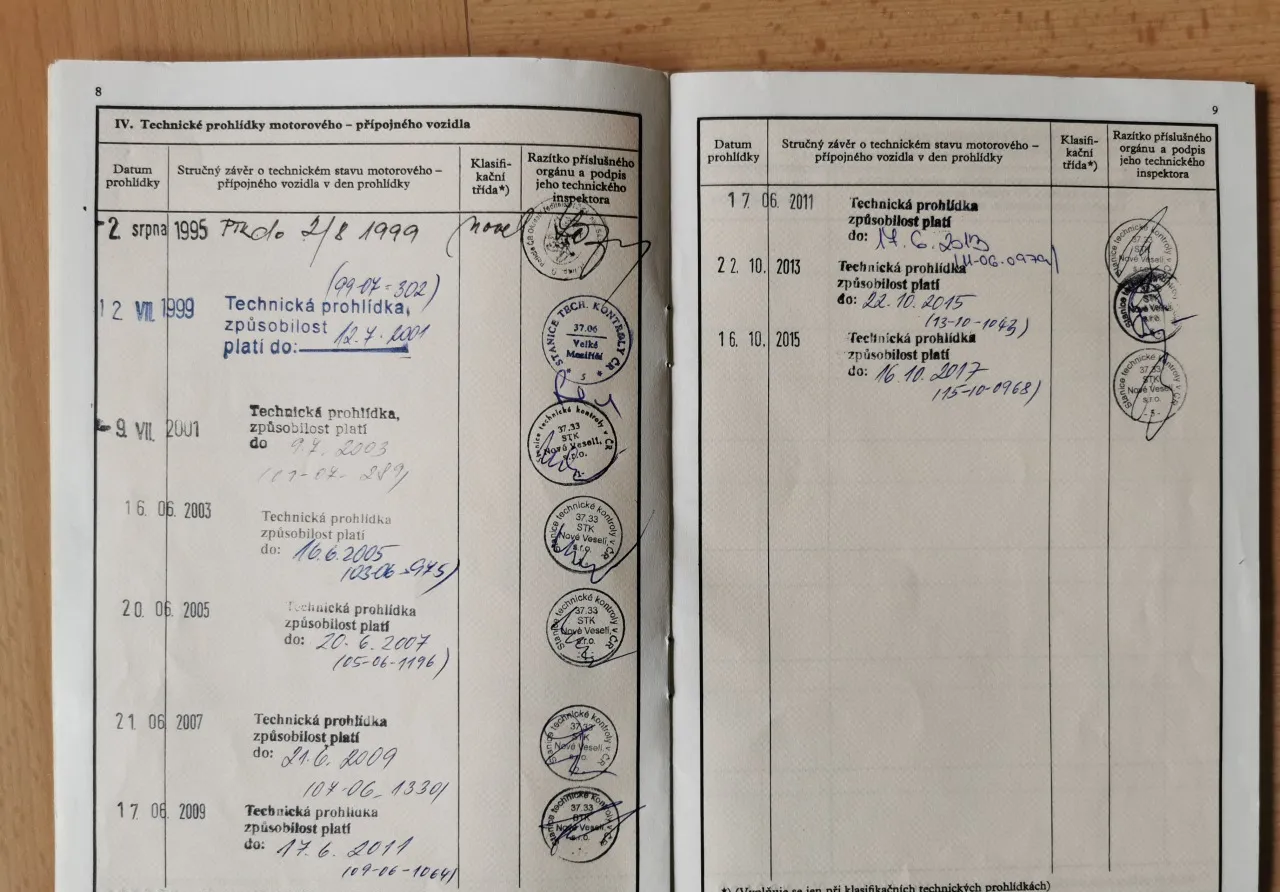 8
IV. Technické prohlídky motorového – přípojného vozidla
Datum prohlídky
Stručný závěr o technickém stavu motorového –
přípojného vozidla v den prohlídky
Klasifi-
kační
třída*)
Razítko příslušného
orgánu a podpis
jeho technického
inspektora
-2. srpna 1995
do 2/8 1999
(99-07-302)
12 VII. 1999
Technická prohlídka,
způsobilost 12.7.2001
platí do:
STANICE TECH. KONTROLY ČR
37.06
Velké
Meziříčí
5
-9. VII. 2001
Technická prohlídka,
způsobilost platí
do 9.7.2003
(01-07-289)
Stanice technické kontroly v ČR
37.33
STK
Nové Veselí,
s.r.o.
16. 06. 2003
Technická prohlídka
způsobilost platí
do: 16.6.2005
(03-06-975)
Stanice technické kontroly v ČR
37.33
STK
Nové Veselí,
s.r.o.
20. 06. 2005
Technická prohlídka
způsobilost platí
do: 20.6.2007
(05-06-1196)
Stanice technické kontroly v ČR
37.33
STK
Nové Veselí,
s.r.o.
21 06 2007
Technická prohlídka
způsobilost platí
do: 21.6.2009
(07-06-1330)
Stanice technické kontroly v ČR
37.33
STK
Nové Veselí,
s.r.o.
17 06. 2009
Technická prohlídka
způsobilost platí
do: 17.6.2011
(09-06-1064)
Stanice technické kontroly v ČR
37.33
STK
Nové Veselí,
s.r.o.
9
Datum
prohlídky
Stručný závěr o technickém stavu motorového –
přípojného vozidla v den prohlídky
Klasifi-
kační
třída*)
Razítko příslušného
orgánu a podpis
jeho technického
inspektora
17. 06. 2011
Technická prohlídka
způsobilost platí
do: 17.6.2013
(11-06-0979)
Stanice technické kontroly v ČR
37.33
STK
Nové Veselí,
s.r.o.
22. 10. 2013
Technická prohlídka
způsobilost platí
do: 22.10.2015
(13-10-1043)
16. 10. 2015
Technická prohlídka
způsobilost platí
do: 16.10.2017
(15-10-0968)
Stanice technické kontroly v ČR
37.33
STK
Nové Veselí,
s.r.o.
- 5 -
*) (Vyplňuje se jen při klasifikačních technických prohlídkách)